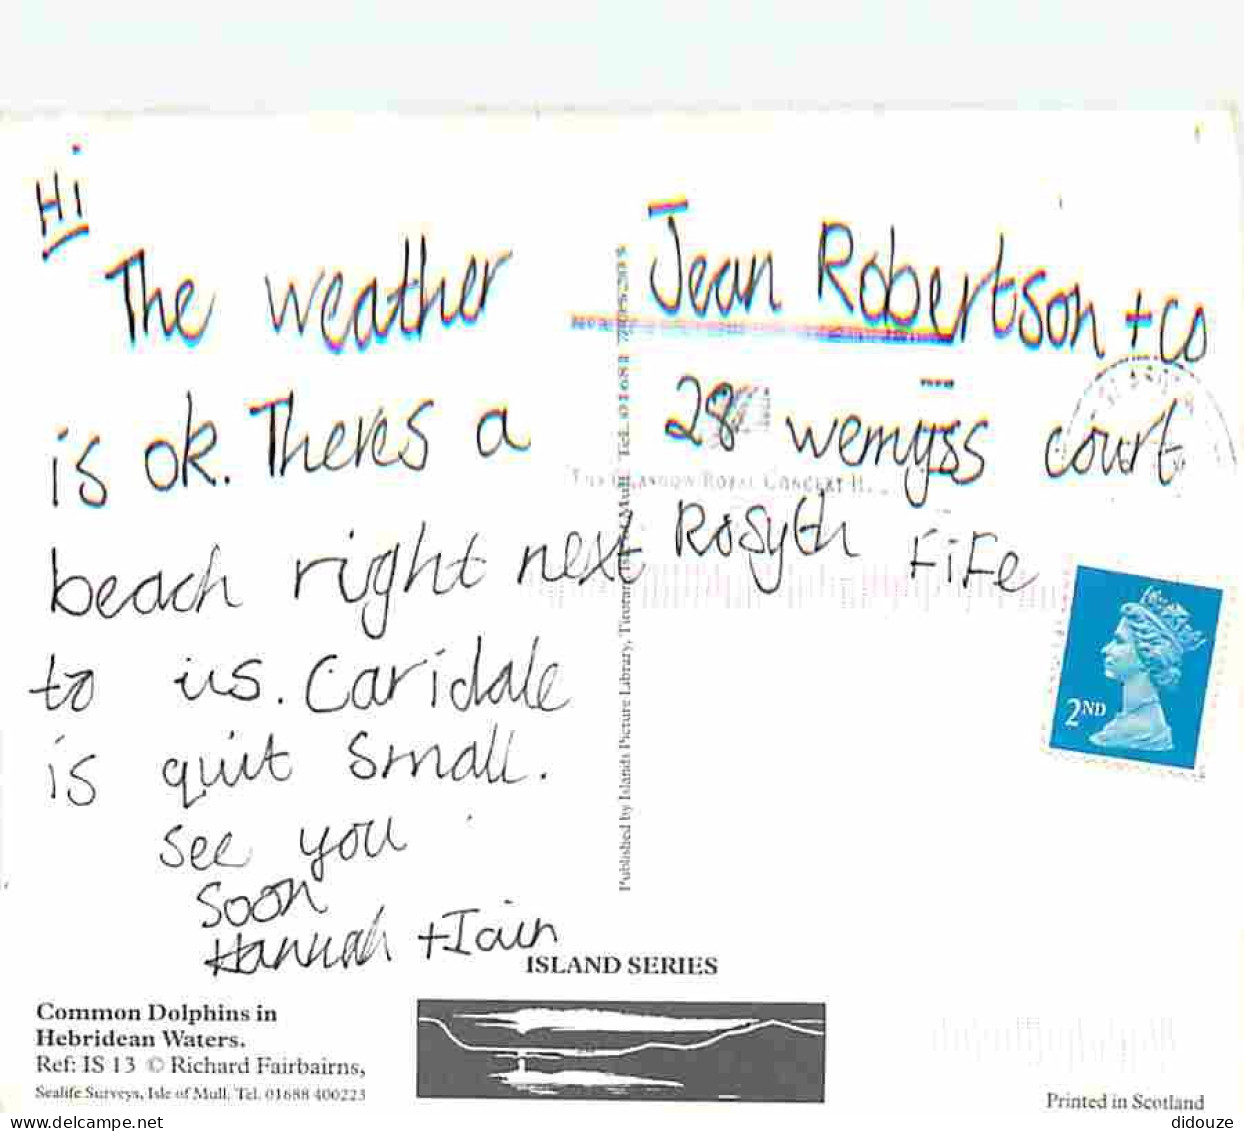 Hi
The weather
is ok. Theres a
beach right next
to us. Caridale
is quit small.
see you
soon
Hannah + Iain
Jean Robertson + co
28 wemyss court
Rosyth FiFe
THE GLASGOW ROYAL CONCERT H
2ND
Published by Islands Picture Library, Tiroran, Isle of Mull. Tel. 01681
ISLAND SERIES
Common Dolphins in
Hebridean Waters.
Ref: IS 13 © Richard Fairbairns,
Sealife Surveys, Isle of Mull. Tel. 01688 400223
Printed in Scotland
www.delcampe.net
didouze